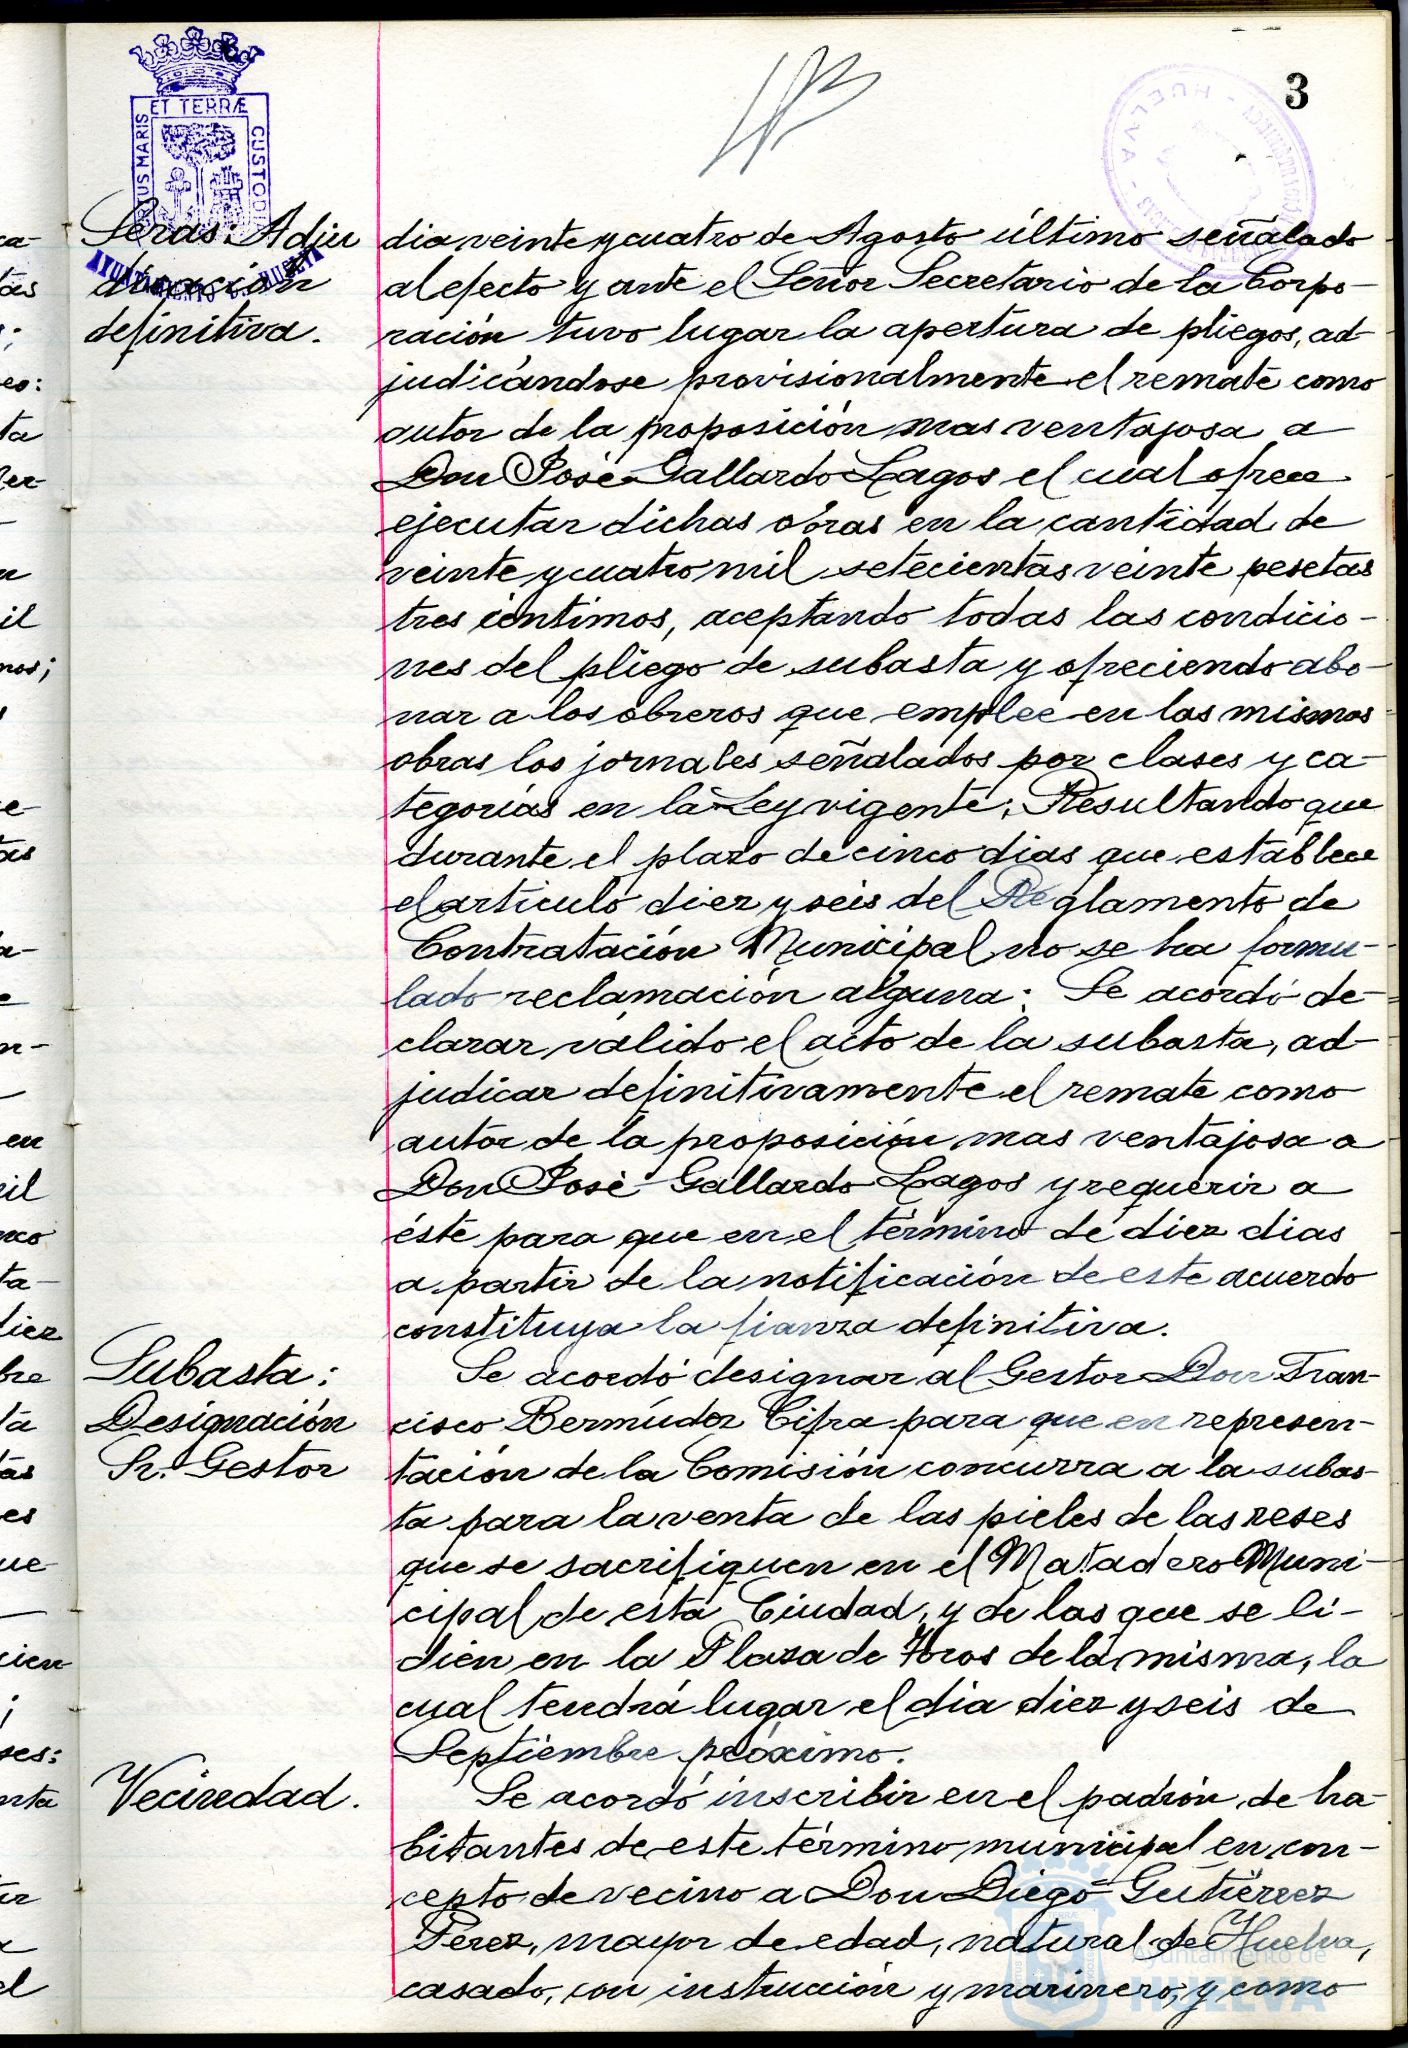 3
ET TERRÆ
PORTUS MARIS
CUSTODIA
AYUNTAMIENTO DE HUELVA
HUELVA
Seras: Adju
dicación
definitiva.
dia veinte y cuatro de Agosto último señalado
al efecto y ante el Señor Secretario de la Corpo-
ración tuvo lugar la apertura de pliegos, ad-
judicándose provisionalmente el remate como
autor de la proposición mas ventajosa a
Don José Gallardo Lagos el cual ofrece
ejecutar dichas obras en la cantidad de
veinte y cuatro mil setecientas veinte pesetas
tres céntimos, aceptando todas las condicio-
nes del pliego de subasta y ofreciendo abo-
nar a los obreros que emplee en las mismas
obras los jornales señalados por clases y ca-
tegorías en la Ley vigente; Resultando que
durante el plazo de cinco dias que establece
el artículo diez y seis del Reglamento de
Contratación Municipal no se ha formu-
lado reclamación alguna: Se acordó de-
clarar válido el acto de la subasta, ad-
judicar definitivamente el remate como
autor de la proposición mas ventajosa a
Don José Gallardo Lagos y requerir a
éste para que en el término de diez dias
a partir de la notificación de este acuerdo
constituya la fianza definitiva.
Subasta:
Designación
Sr. Gestor
Se acordó designar al Gestor Don Fran-
cisco Bermúdez Cifra para que en represen-
tación de la Comisión concurra a la subas-
ta para la venta de las pieles de las reses
que se sacrifiquen en el Matadero Muni-
cipal de esta Ciudad, y de las que se li-
dien en la Plaza de Toros de la misma, la
cual tendrá lugar el dia diez y seis de
Septiembre próximo.
Vecindad.
Se acordó inscribir en el padrón de ha-
bitantes de este término municipal en con-
cepto de vecino a Don Diego Gutiérrez
Perez, mayor de edad, natural de Huelva,
casado, con instrucción y marinero, y como
Ayuntamiento de
HUELVA